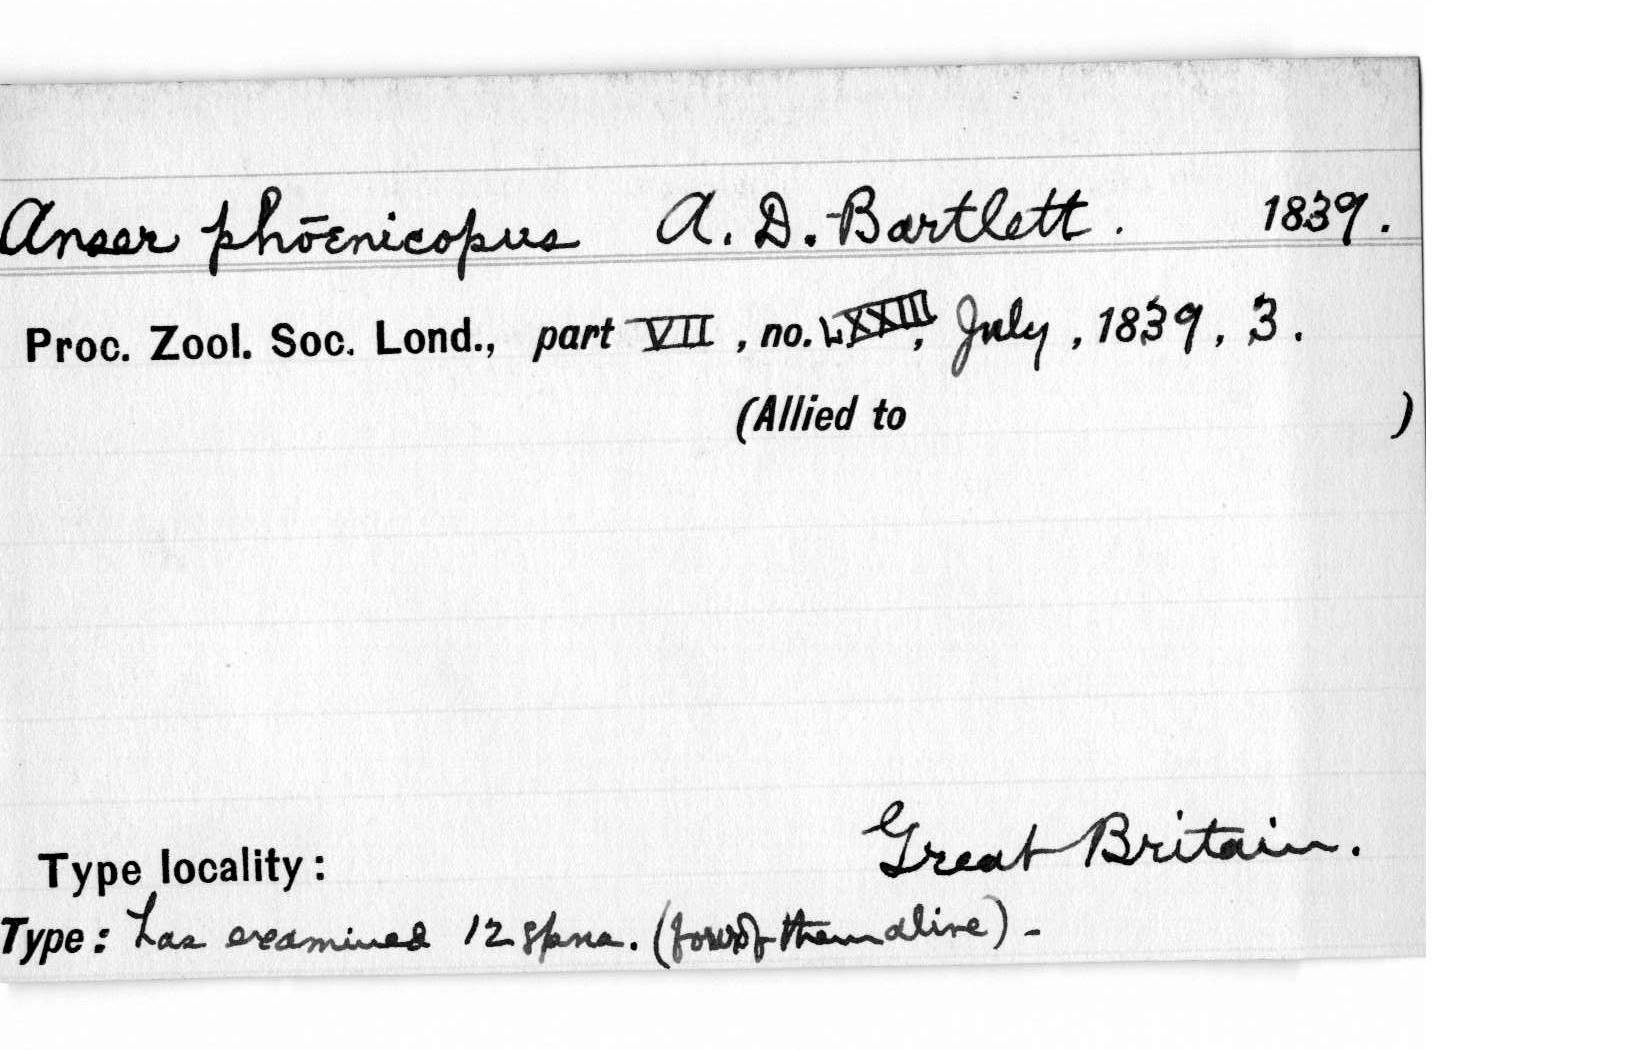 Anser phōenicopus A. D. Bartlett. 1839.
Proc. Zool. Soc. Lond., part VII, no. LXXIII, July, 1839, 3.
(Allied to )
Great Britain.
Type locality:
Type: has examined 12 spns. (four of them alive) -